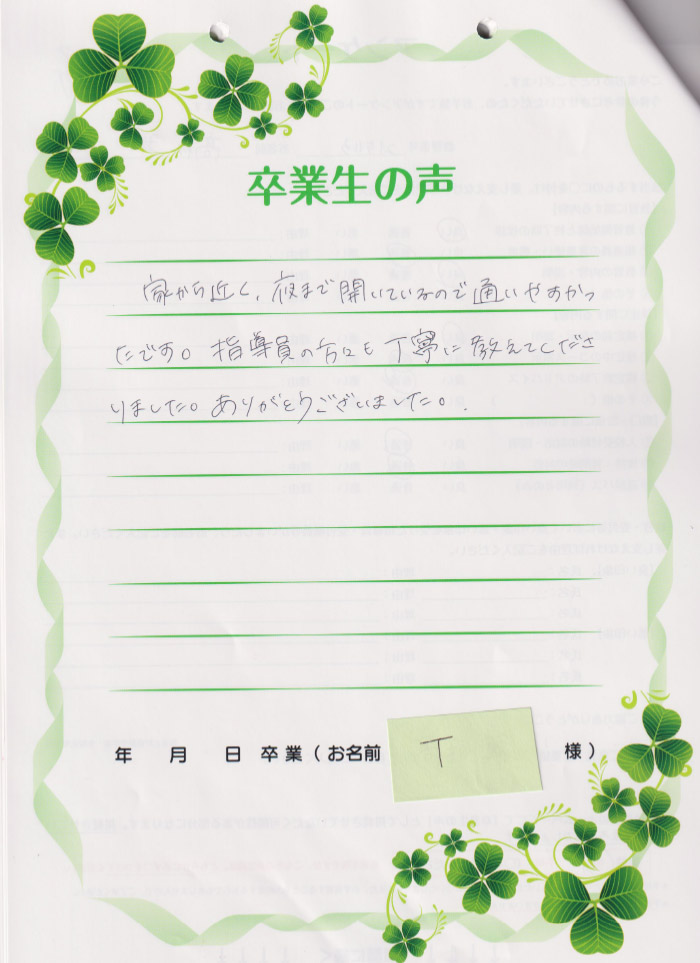 卒業生の声
家から近く、夜まで開いているので通いやすかっ
たです。指導員の方々も丁寧に教えてくださ
りました。ありがとうございました。
年 月 日 卒業(お名前 T 様)